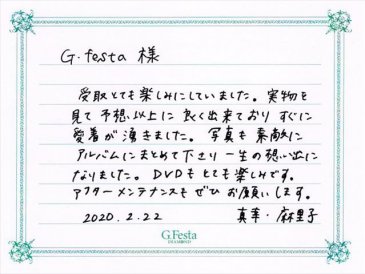 G.festa 様
受取とても楽しみにしていました。実物を
見て予想以上に良く出来ており すぐに
愛着が湧きました。写真も素敵に
アルバムにまとめて下さり一生の想い出に
なりました。DVDもとても楽しみです。
アフターメンテナンスもぜひお願いします。
2020.2.22 真幸・麻里子
G.Festa
DIAMOND